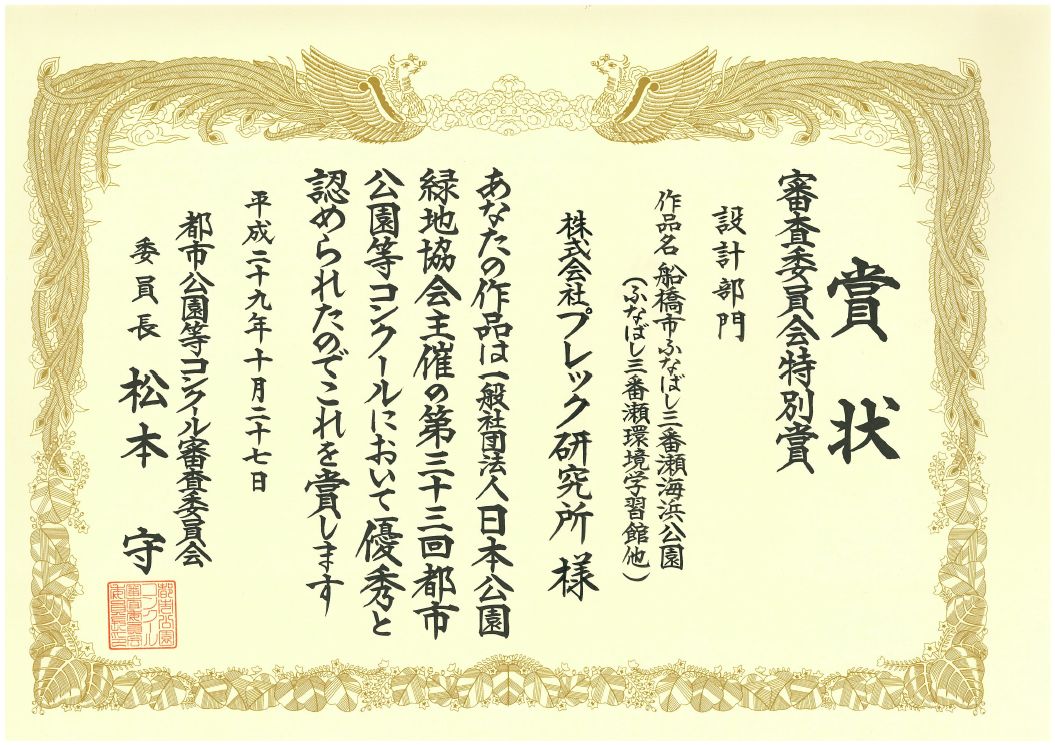 賞状
審査委員会特別賞
設計部門
作品名 船橋市ふなばし三番瀬海浜公園
(ふなばし三番瀬環境学習館他)
株式会社プレック研究所 様
あなたの作品は一般社団法人日本公園
緑地協会主催の第三十三回都市
公園等コンクールにおいて優秀と
認められたのでこれを賞します
平成二十九年十月二十七日
都市公園等コンクール審査委員会
委員長 松本 守